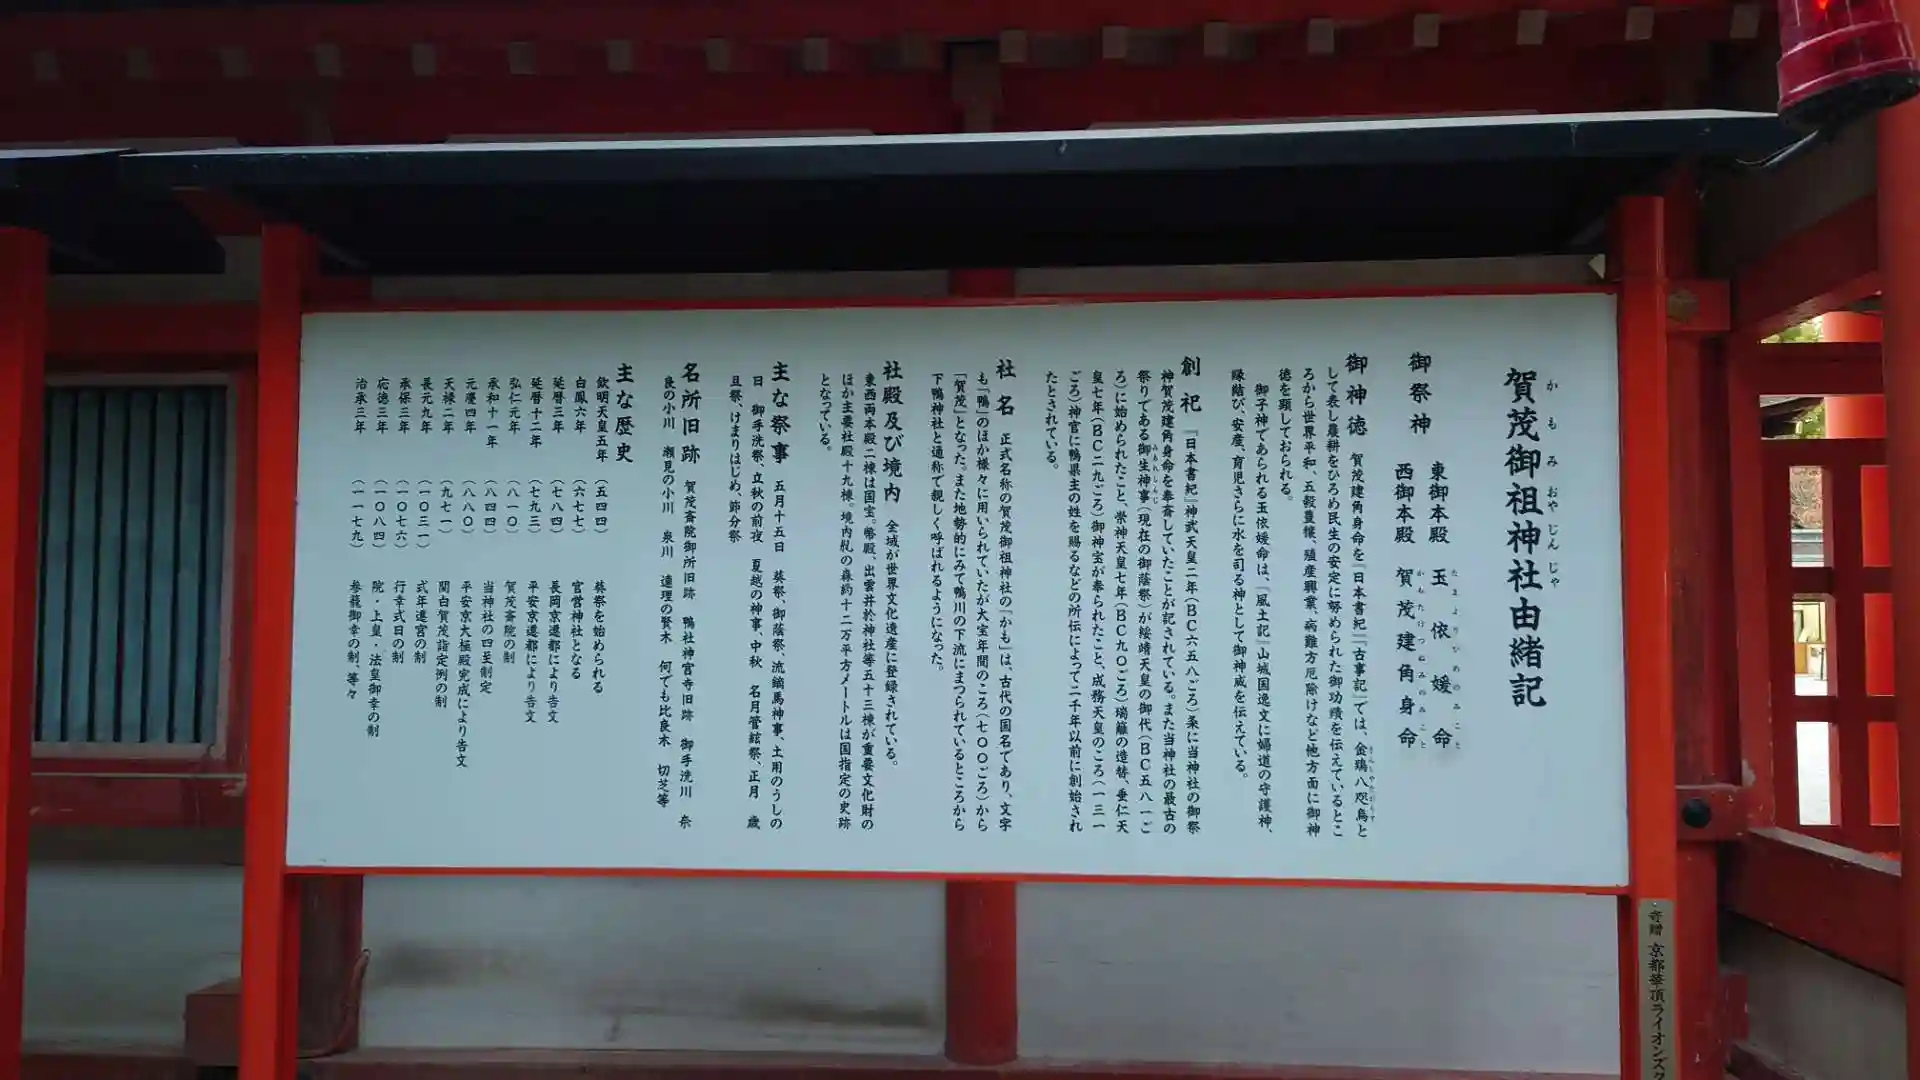 賀茂御祖神社由緒記
かもみおやじんじゃ
御祭神
東御本殿 玉依媛命
たまよりひめのみこと
西御本殿 賀茂建角身命
かもたけつぬみのみこと
御神徳 賀茂建角身命を『日本書紀』『古事記』では、金鵄八咫烏と
して表し農耕をひろめ民生の安定に努められた御功績を伝えているとこ
ろから世界平和、五穀豊穣、殖産興業、病難方厄除けなど他方面に御神
徳を顕しておられる。
御子神であられる玉依媛命は、『風土記』山城国逸文に婦道の守護神、
縁結び、安産、育児さらに水を司る神として御神威を伝えている。
創祀 『日本書紀』神武天皇二年（ＢＣ六五八ごろ）条に当神社の御祭
神賀茂建角身命を奉斎していたことが記されている。また当神社の最古の
祭りである御生神事（現在の御蔭祭）が綏靖天皇の御代（ＢＣ五八一ご
ろ）に始められたこと、崇神天皇七年（ＢＣ九〇ごろ）瑞籬の造替、垂仁天
皇七年（ＢＣ二九ごろ）御神宝が奉られたこと、成務天皇のころ（一三一
ごろ）神官に鴨県主の姓を賜るなどの所伝によって二千年以前に創始され
たとされている。
社名 正式名称の賀茂御祖神社の「かも」は、古代の国名であり、文字
も「鴨」のほか様々に用いられていたが大宝年間のころ（七〇〇ごろ）から
「賀茂」となった。また地勢的にみて鴨川の下流にまつられているところから
下鴨神社と通称で親しく呼ばれるようになった。
社殿及び境内 全域が世界文化遺産に登録されている。
東西両本殿二棟は国宝。幣殿、出雲井於神社等五十三棟が重要文化財の
ほか主要社殿十九棟。境内糺の森約十二万平方メートルは国指定の史跡
となっている。
主な祭事 五月十五日 葵祭、御蔭祭、流鏑馬神事、土用のうしの
日 御手洗祭、立秋の前夜 夏越の神事、中秋 名月管絃祭、正月 歳
旦祭、けまりはじめ、節分祭
名所旧跡 賀茂斎院御所旧跡 鴨社神宮寺旧跡 御手洗川 奈
良の小川 瀬見の小川 泉川 連理の賢木 何でも比良木 切芝等
主な歴史
欽明天皇五年 （五四四） 葵祭を始められる
白鳳六年 （六七七） 官営神社となる
延暦三年 （七八四） 長岡京遷都により告文
延暦十二年 （七九三） 平安京遷都により告文
弘仁元年 （八一〇） 賀茂斎院の制
承和十一年 （八四四） 当神社の四至制定
元慶四年 （八八〇） 平安京大極殿完成により告文
天禄二年 （九七一） 関白賀茂詣定例の制
長元九年 （一〇三一） 式年遷宮の制
承保三年 （一〇七六） 行幸式日の制
応徳三年 （一〇八四） 院・上皇・法皇御幸の制
治承三年 （一一七九） 参籠御幸の制、等々
寄贈 京都華頂ライオンズク